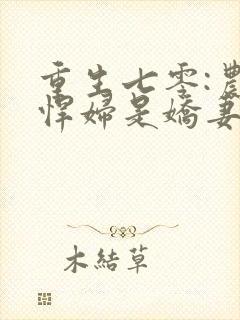 重生七零:農
悍婦是嬌妻
木結草